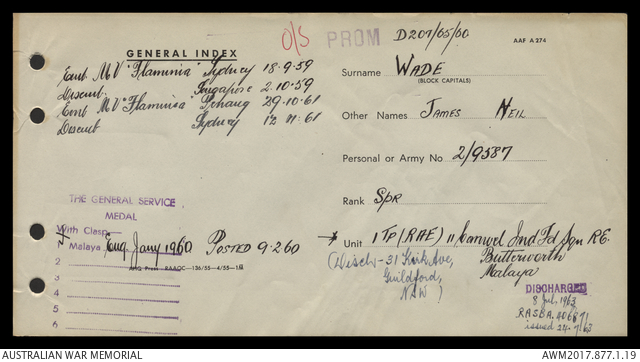 GENERAL INDEX
O/S
PROM
D207/65/60
AAF A 274
Emb MV "Flaminia" Sydney 18.9.59
Disemb: Singapore 2.10.59
Emb MV "Flaminia" Penang 29.10.61
Disemb Sydney 12 11.61
Surname WADE
(BLOCK CAPITALS)
Other Names JAMES NEIL
Personal or Army No. 2/9587
Rank SPR
THE GENERAL SERVICE
MEDAL
With Clasp
1 Malaya Enq. Jany 1960 POSTED 9.2.60
2
3
4
5
6
AHQ Press RAAOC—136/55—4/55—1M
* Unit 1 TP (RAE) 11 Ind Fd Sqn RE.
Butterworth
Malaya
(Disch - 31 Kirk Ave,
Guildford,
NSW)
DISCHARGED
8 Jul. 1963
R.A.S.B.A.
issued 24.7.63
AUSTRALIAN WAR MEMORIAL
AWM2017.877.1.19